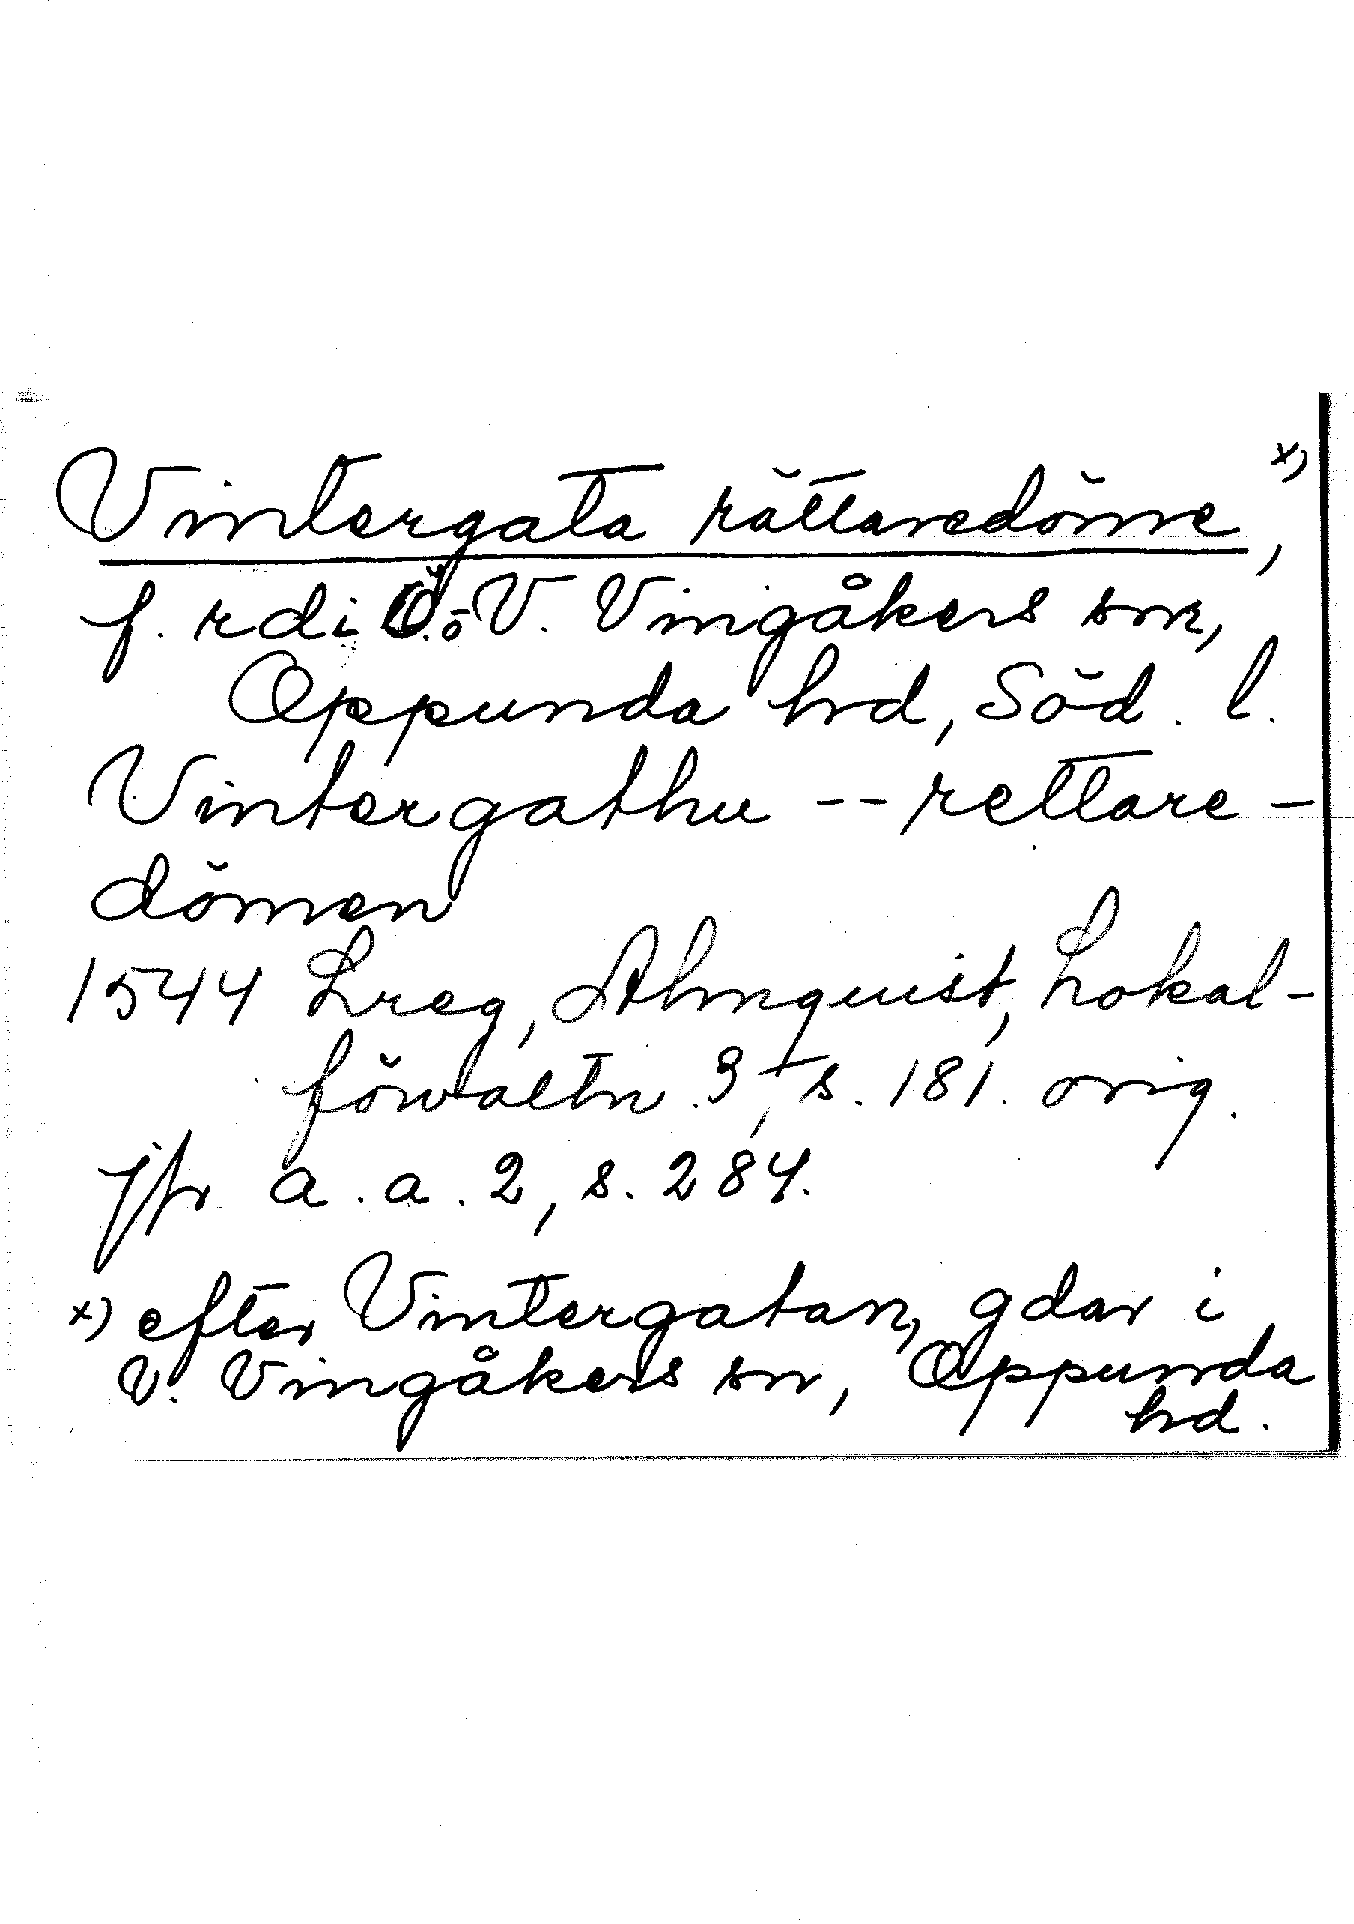 Vintergata rättaredöme, x)
f. rd i Ö. o V. Vingåkers snr,
Oppunda hd, Söd. l.
Vintergathu -- rettare-
dömen
1544 Lreg, Almquist, Lokal-
förvaltn. 3, s. 181. orig.
jfr a. a. 2, s. 284.
x) efter Vintergatan, gdar i
V. Vingåkers sn, Oppunda
hd.